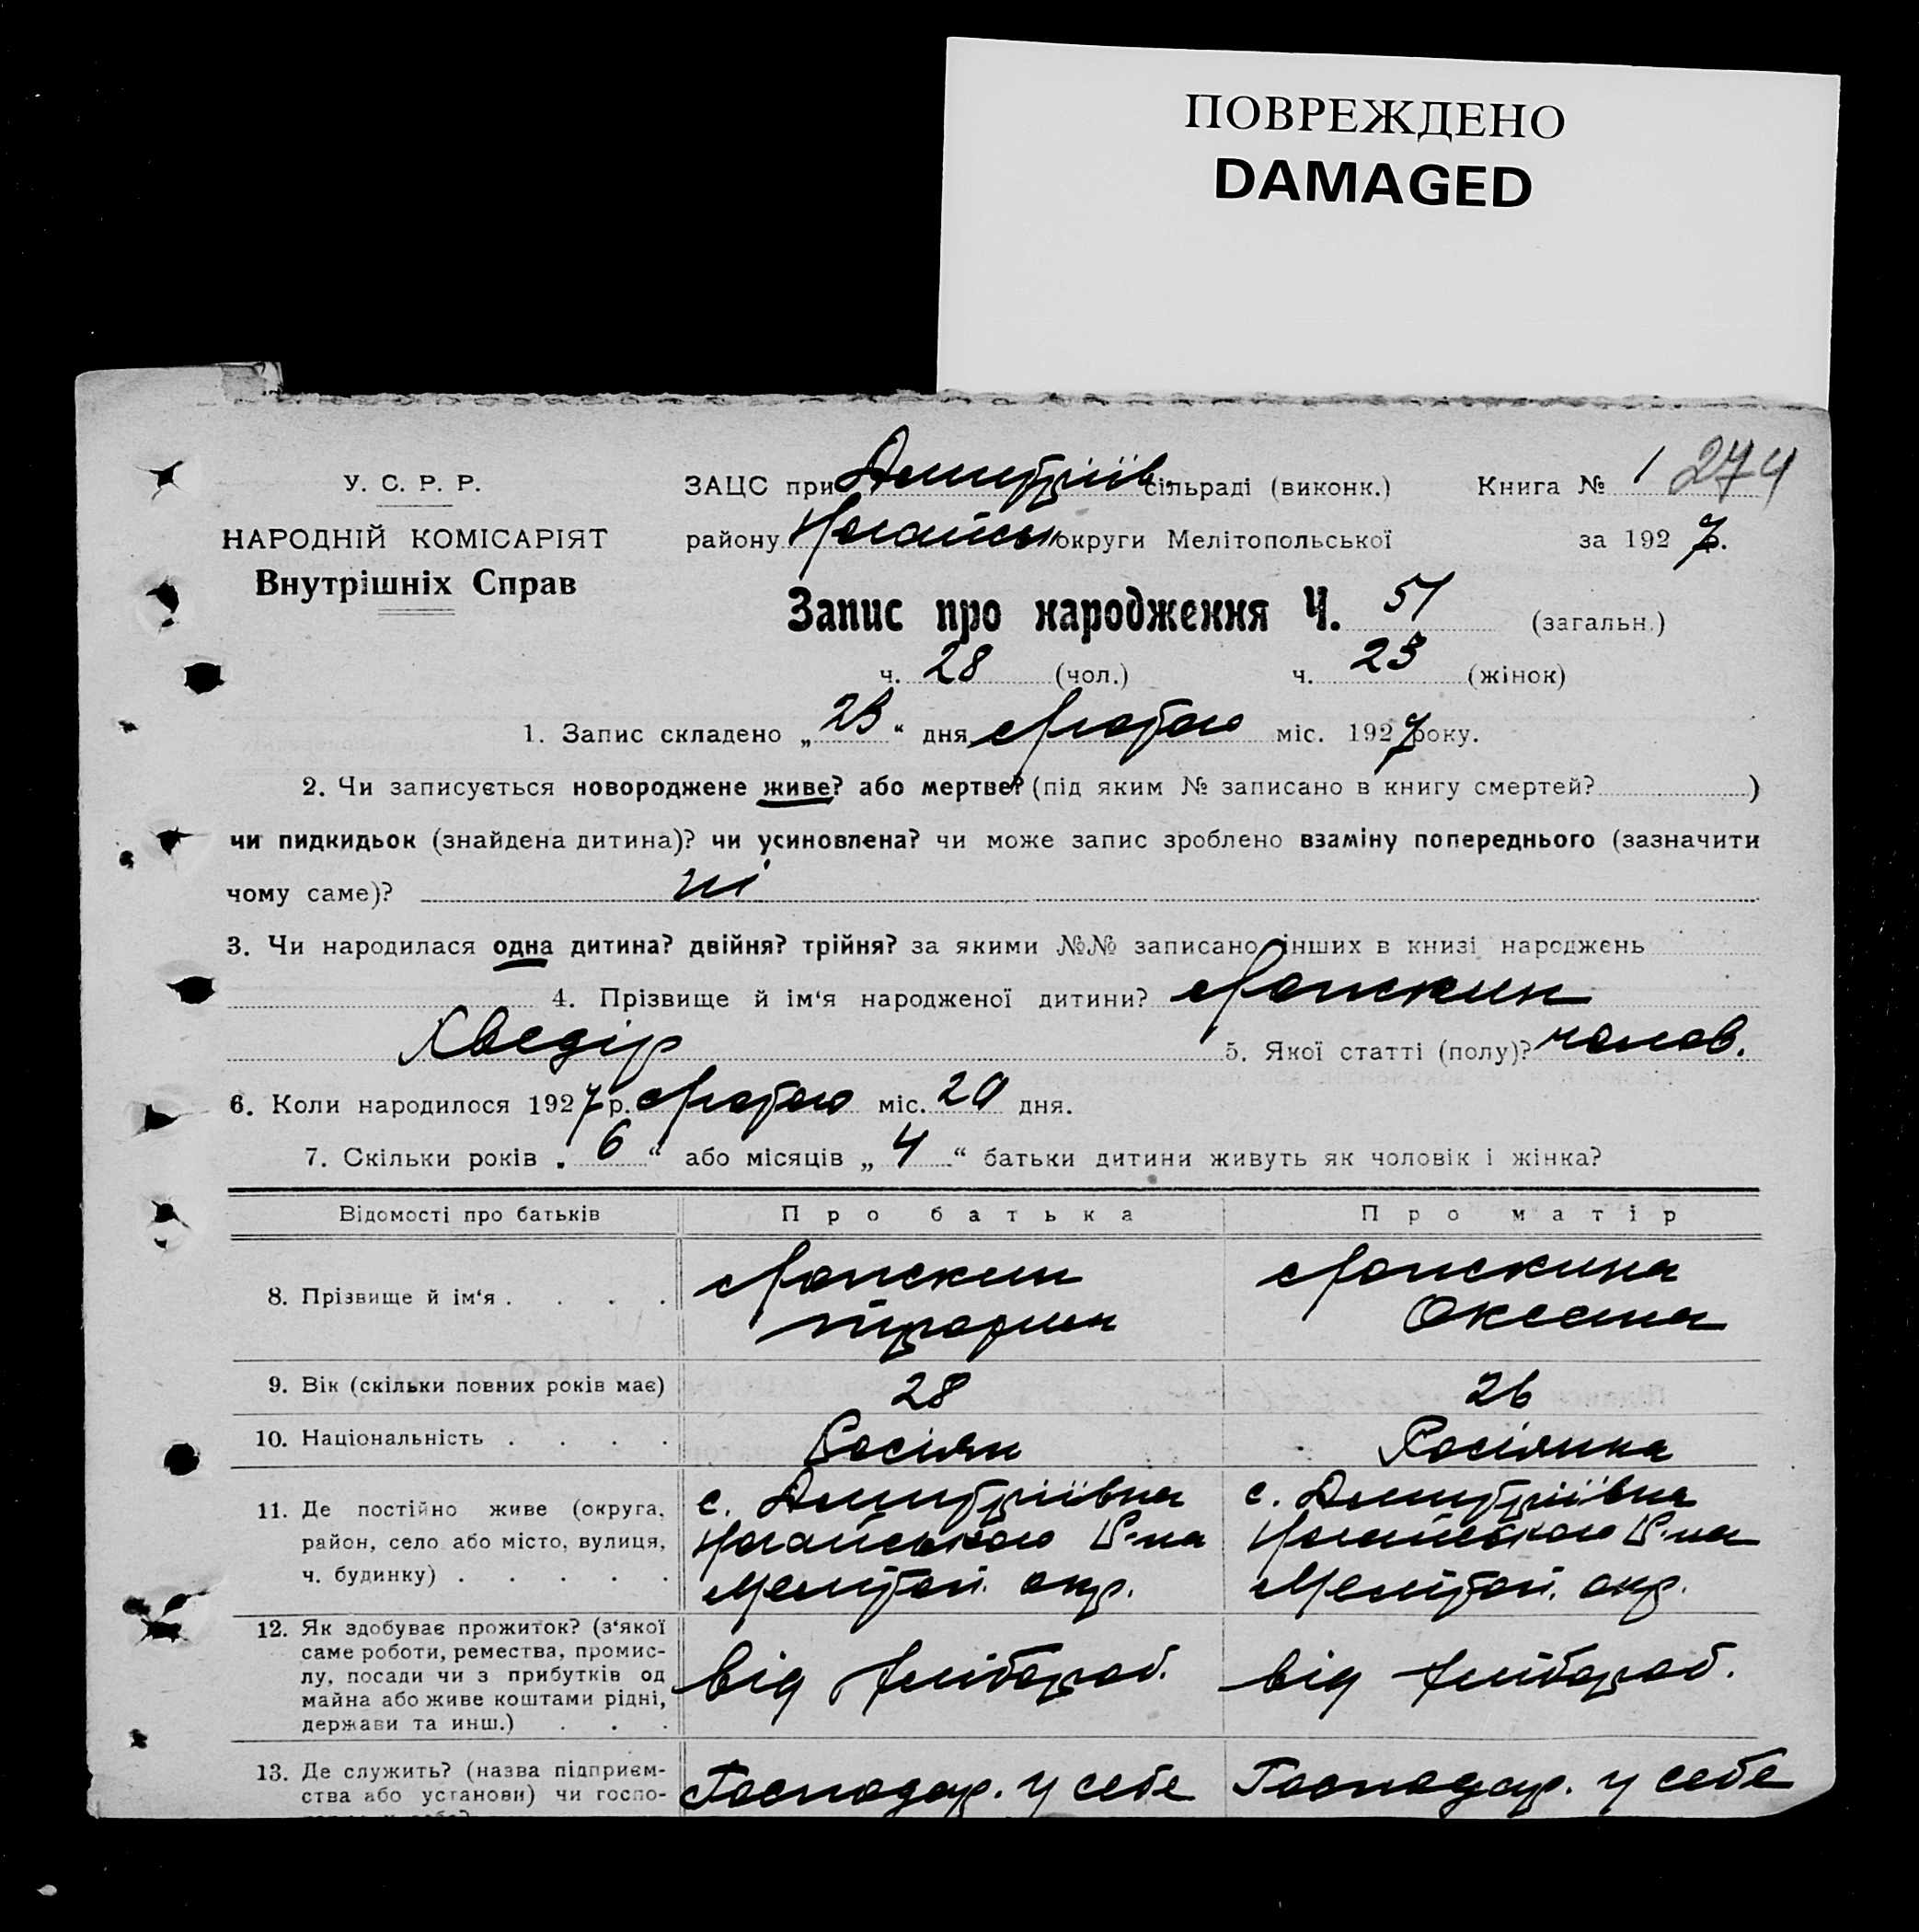 ПОВРЕЖДЕНО
DAMAGED
У. С. Р. Р.
НАРОДНІЙ КОМІСАРІЯТ
Внутрішніх Справ
ЗАЦС при Дмитріїв. сільраді (виконк.)
району Ногайськ округи Мелітопольської
Книга № 1 274
за 1927 р.
Запис про народження Ч. 51 (загальн.)
ч. 28 (чол.) ч. 23 (жінок)
1. Запис складено „23“ дня лютого міс. 1927 року.
2. Чи записується новороджене живе? або мертве? (під яким № записано в книгу смертей? )
чи пидкидьок (знайдена дитина)? чи усиновлена? чи може запис зроблено взаміну попереднього (зазначити
чому саме)? ні
3. Чи народилася одна дитина? двійня? трійня? за якими №№ записано інших в книзі народжень
4. Прізвище й ім‘я народженої дитини? Лапскин
Хведір 5. Якої статті (полу)? чолов.
6. Коли народилося 1927 р. лютого міс. 20 дня.
7. Скільки років „6“ або місяців „4“ батьки дитини живуть як чоловік і жінка?
Відомості про батьків Про батька Про матір
8. Прізвище й ім‘я . . . . Лапскин Лапскина
Оксана
9. Вік (скільки повних років має) 28 26
10. Національність . . . . Росіян Росіянка
11. Де постійно живе (округа, с. Дмитріївка с. Дмитріївка
район, село або місто, вулиця, Ногайського Р-на Ногайського Р-на
ч. будинку) . . . . . Мелітоп. окр. Мелітоп. окр.
12. Як здобуває прожиток? (з‘якої
саме роботи, ремества, промис-
лу, посади чи з прибутків од від хлібороб. від хлібороб.
майна або живе коштами рідні,
держави та инш.) . . .
13. Де служить? (назва підприєм- Господар. у себе Господар. у себе
ства або установи) чи госпо-